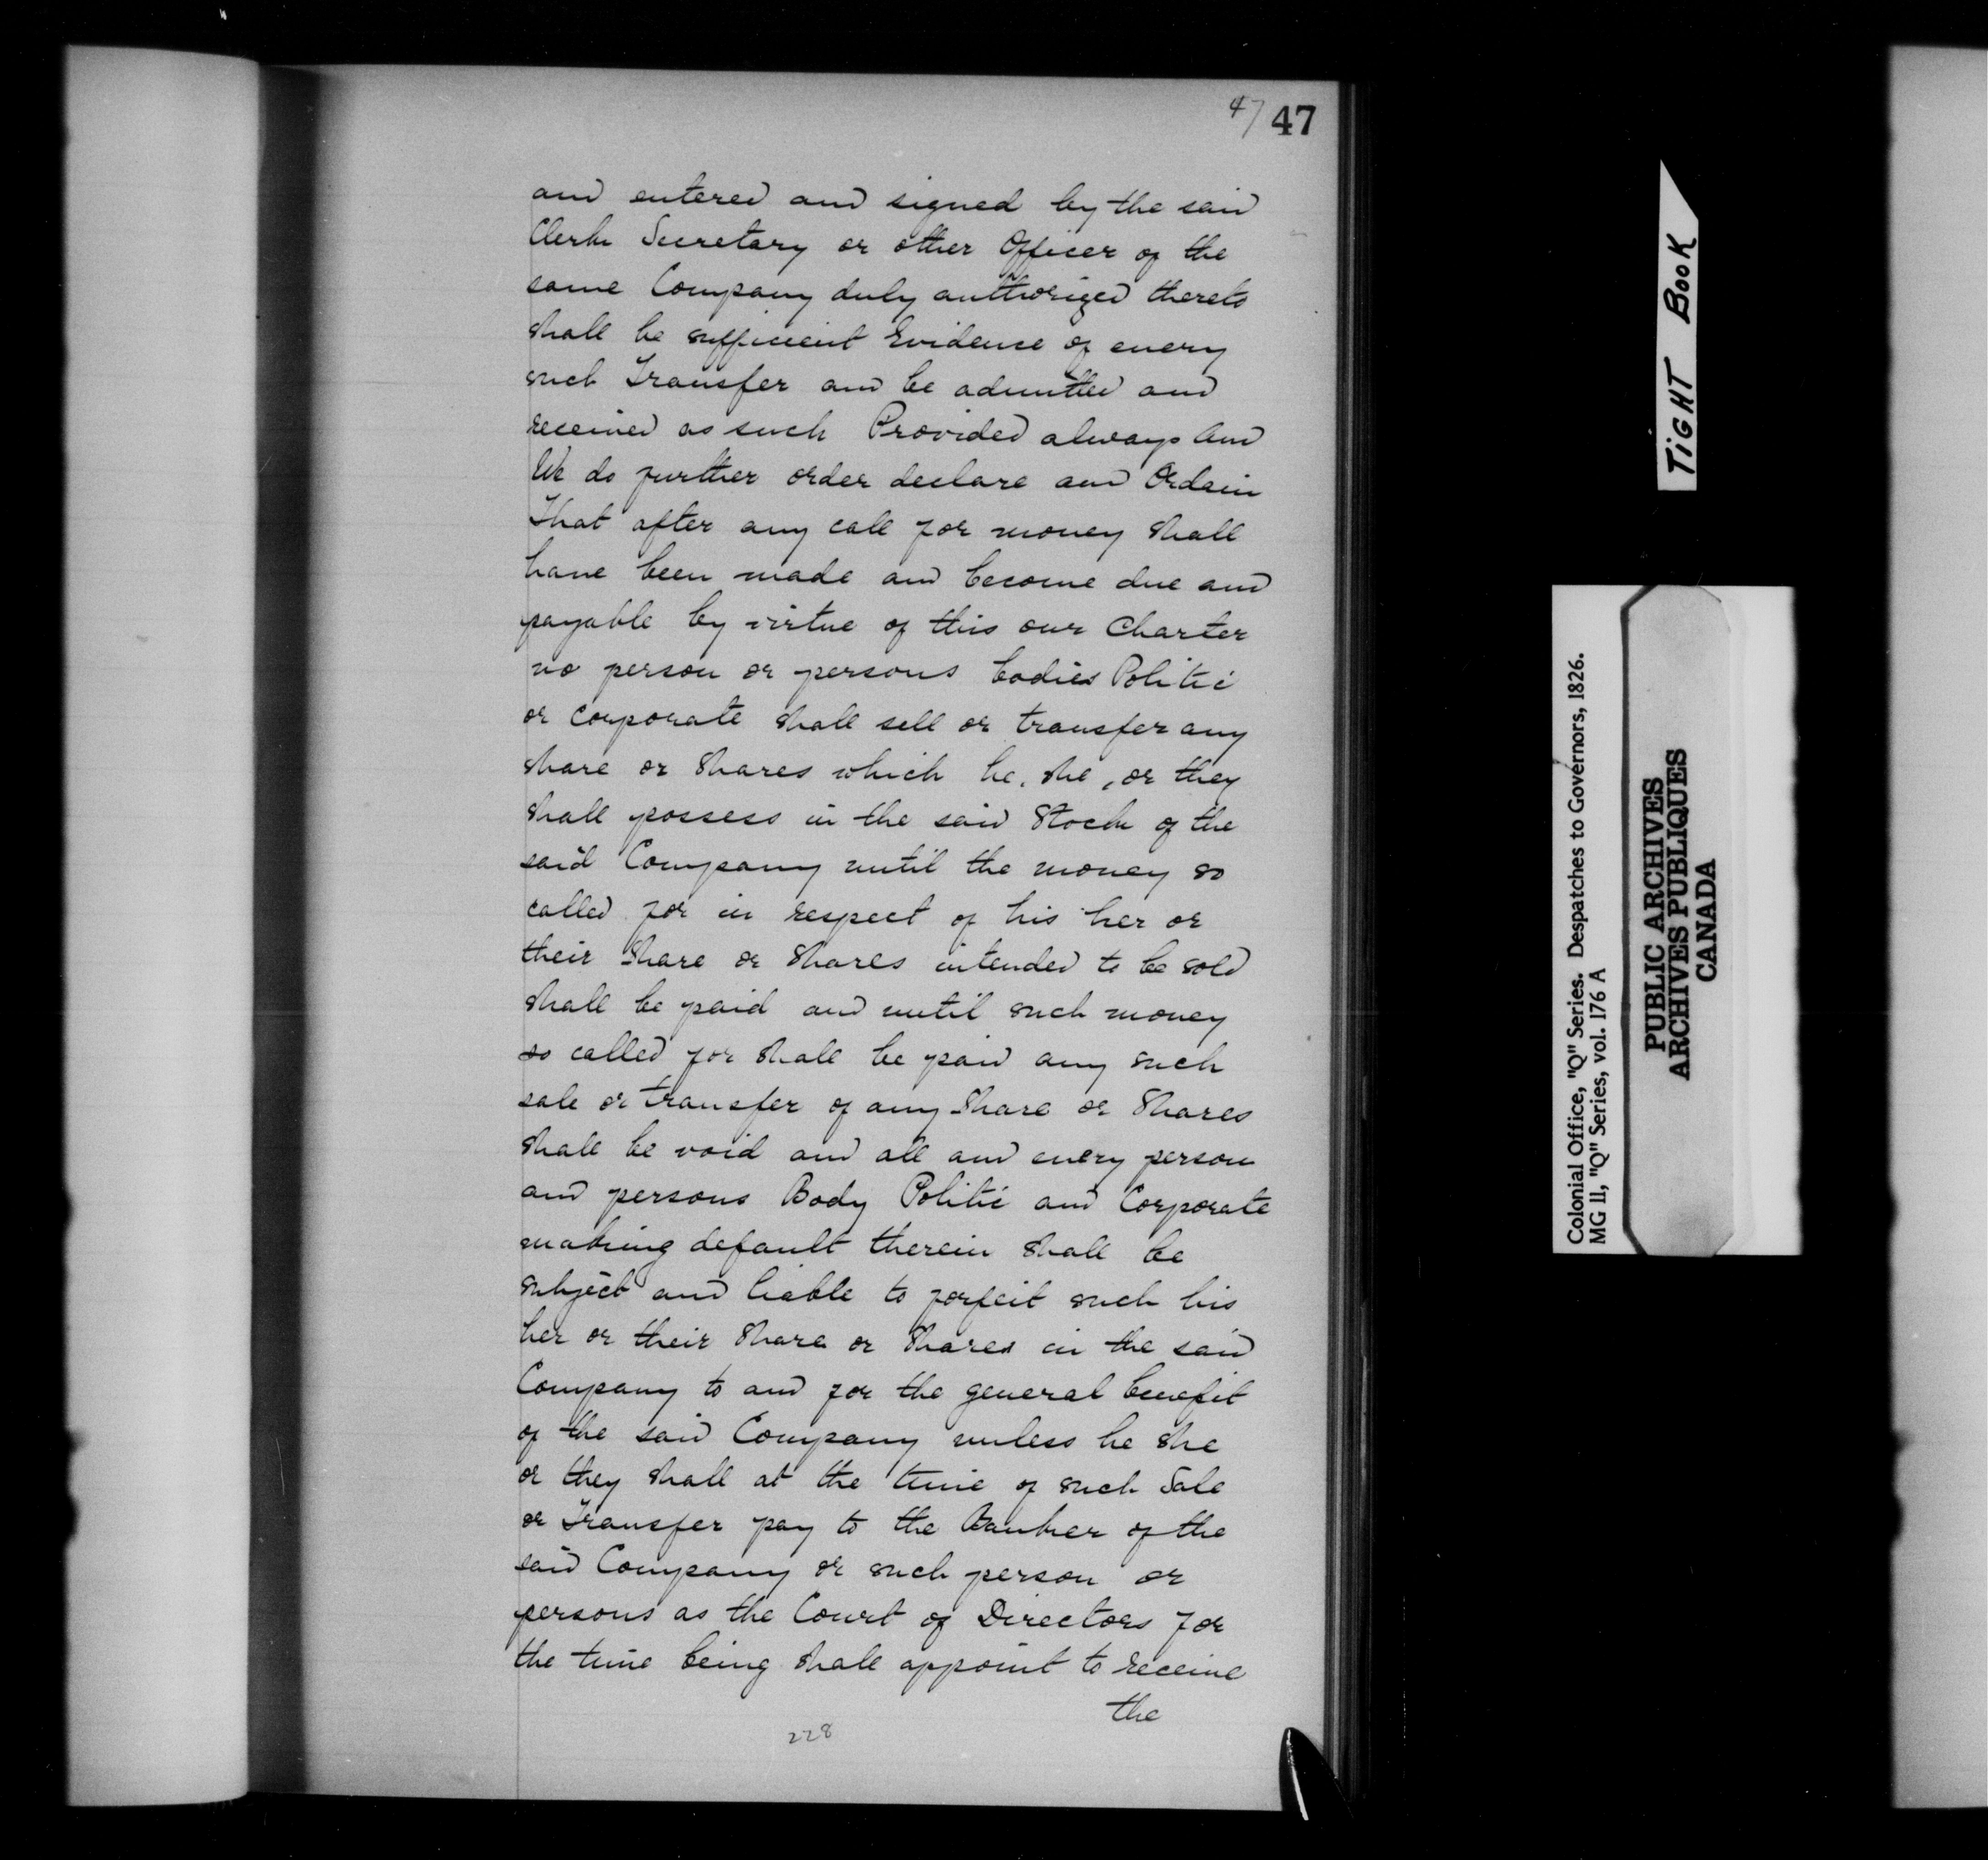 47 47
and entered and signed by the said
Clerk Secretary or other Officer of the
same Company duly authorized thereto
shall be sufficient Evidence of every
such Transfer and be admitted and
received as such Provided always And
We do further order declare and Ordain
That after any call for money shall
have been made and become due and
payable by virtue of this our Charter
no person or persons bodies Politic
or Corporate shall sell or transfer any
share or Shares which he, she, or they
shall possess in the said Stock of the
said Company until the money so
called for in respect of his her or
their Share or Shares intended to be sold
shall be paid and until such money
so called for shall be paid any such
sale or transfer of any Share or Shares
shall be void and all and every person
and persons Body Politic and Corporate
making default therein shall be
subject and liable to forfeit such his
her or their Share or Shares in the said
Company to and for the general benefit
of the said Company unless he she
or they shall at the time of such Sale
or Transfer pay to the Banker of the
said Company or such person or
persons as the Court of Directors for
the time being shall appoint to receive
the
228
TIGHT BOOK
Colonial Office, "Q" Series. Despatches to Governors, 1826.
MG 11, "Q" Series, vol. 176 A
PUBLIC ARCHIVES
ARCHIVES PUBLIQUES
CANADA